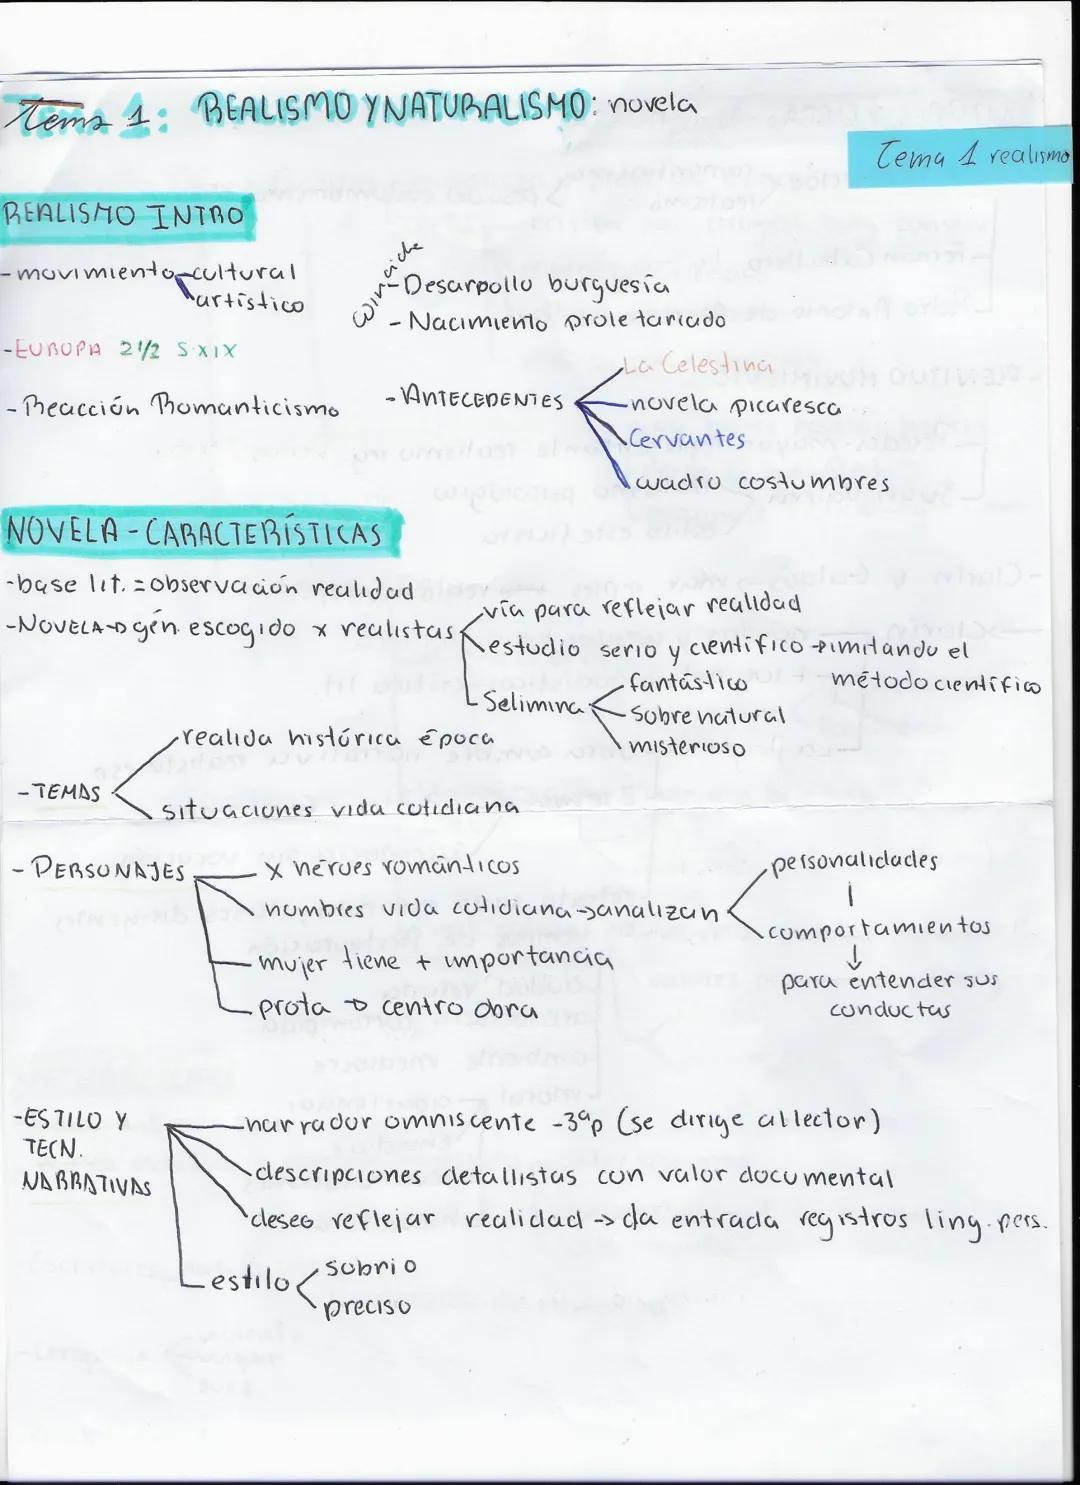 Tema 1: REALISMO Y NATURALISMO: novela
Tema 1 realismo
REALISMO INTRO
-movimiento-cultural
artístico
coincide
-Desarrollo burguesía
- Nacimiento proletariado
-EUROPA 2 1/2 S.XIX
- Reacción Romanticismo
- ANTECEDENTES
La Celestina
novela picaresca
Cervantes
cuadro costumbres
NOVELA - CARACTERÍSTICAS
-base lit. = observación realidad
-NOVELA→ gén. escogido x realistas
vía para reflejar realidad
estudio serio y científico → imitando el
método científico
Selimina
fantástico
sobrenatural
misterioso
- TEMAS
realida histórica época
situaciones vida cotidiana
- PERSONAJES
X héroes románticos
hombres vida cotidiana → analizan
personalidades
comportamientos
↓
para entender sus
conductas
mujer tiene + importancia
prota → centro obra
-ESTILO Y
TECN.
NARRATIVAS
narrador omniscente -3ªp (se dirige al lector)
descripciones detallistas con valor documental
deseo reflejar realidad → da entrada registros ling. pers.
estilo
sobrio
preciso